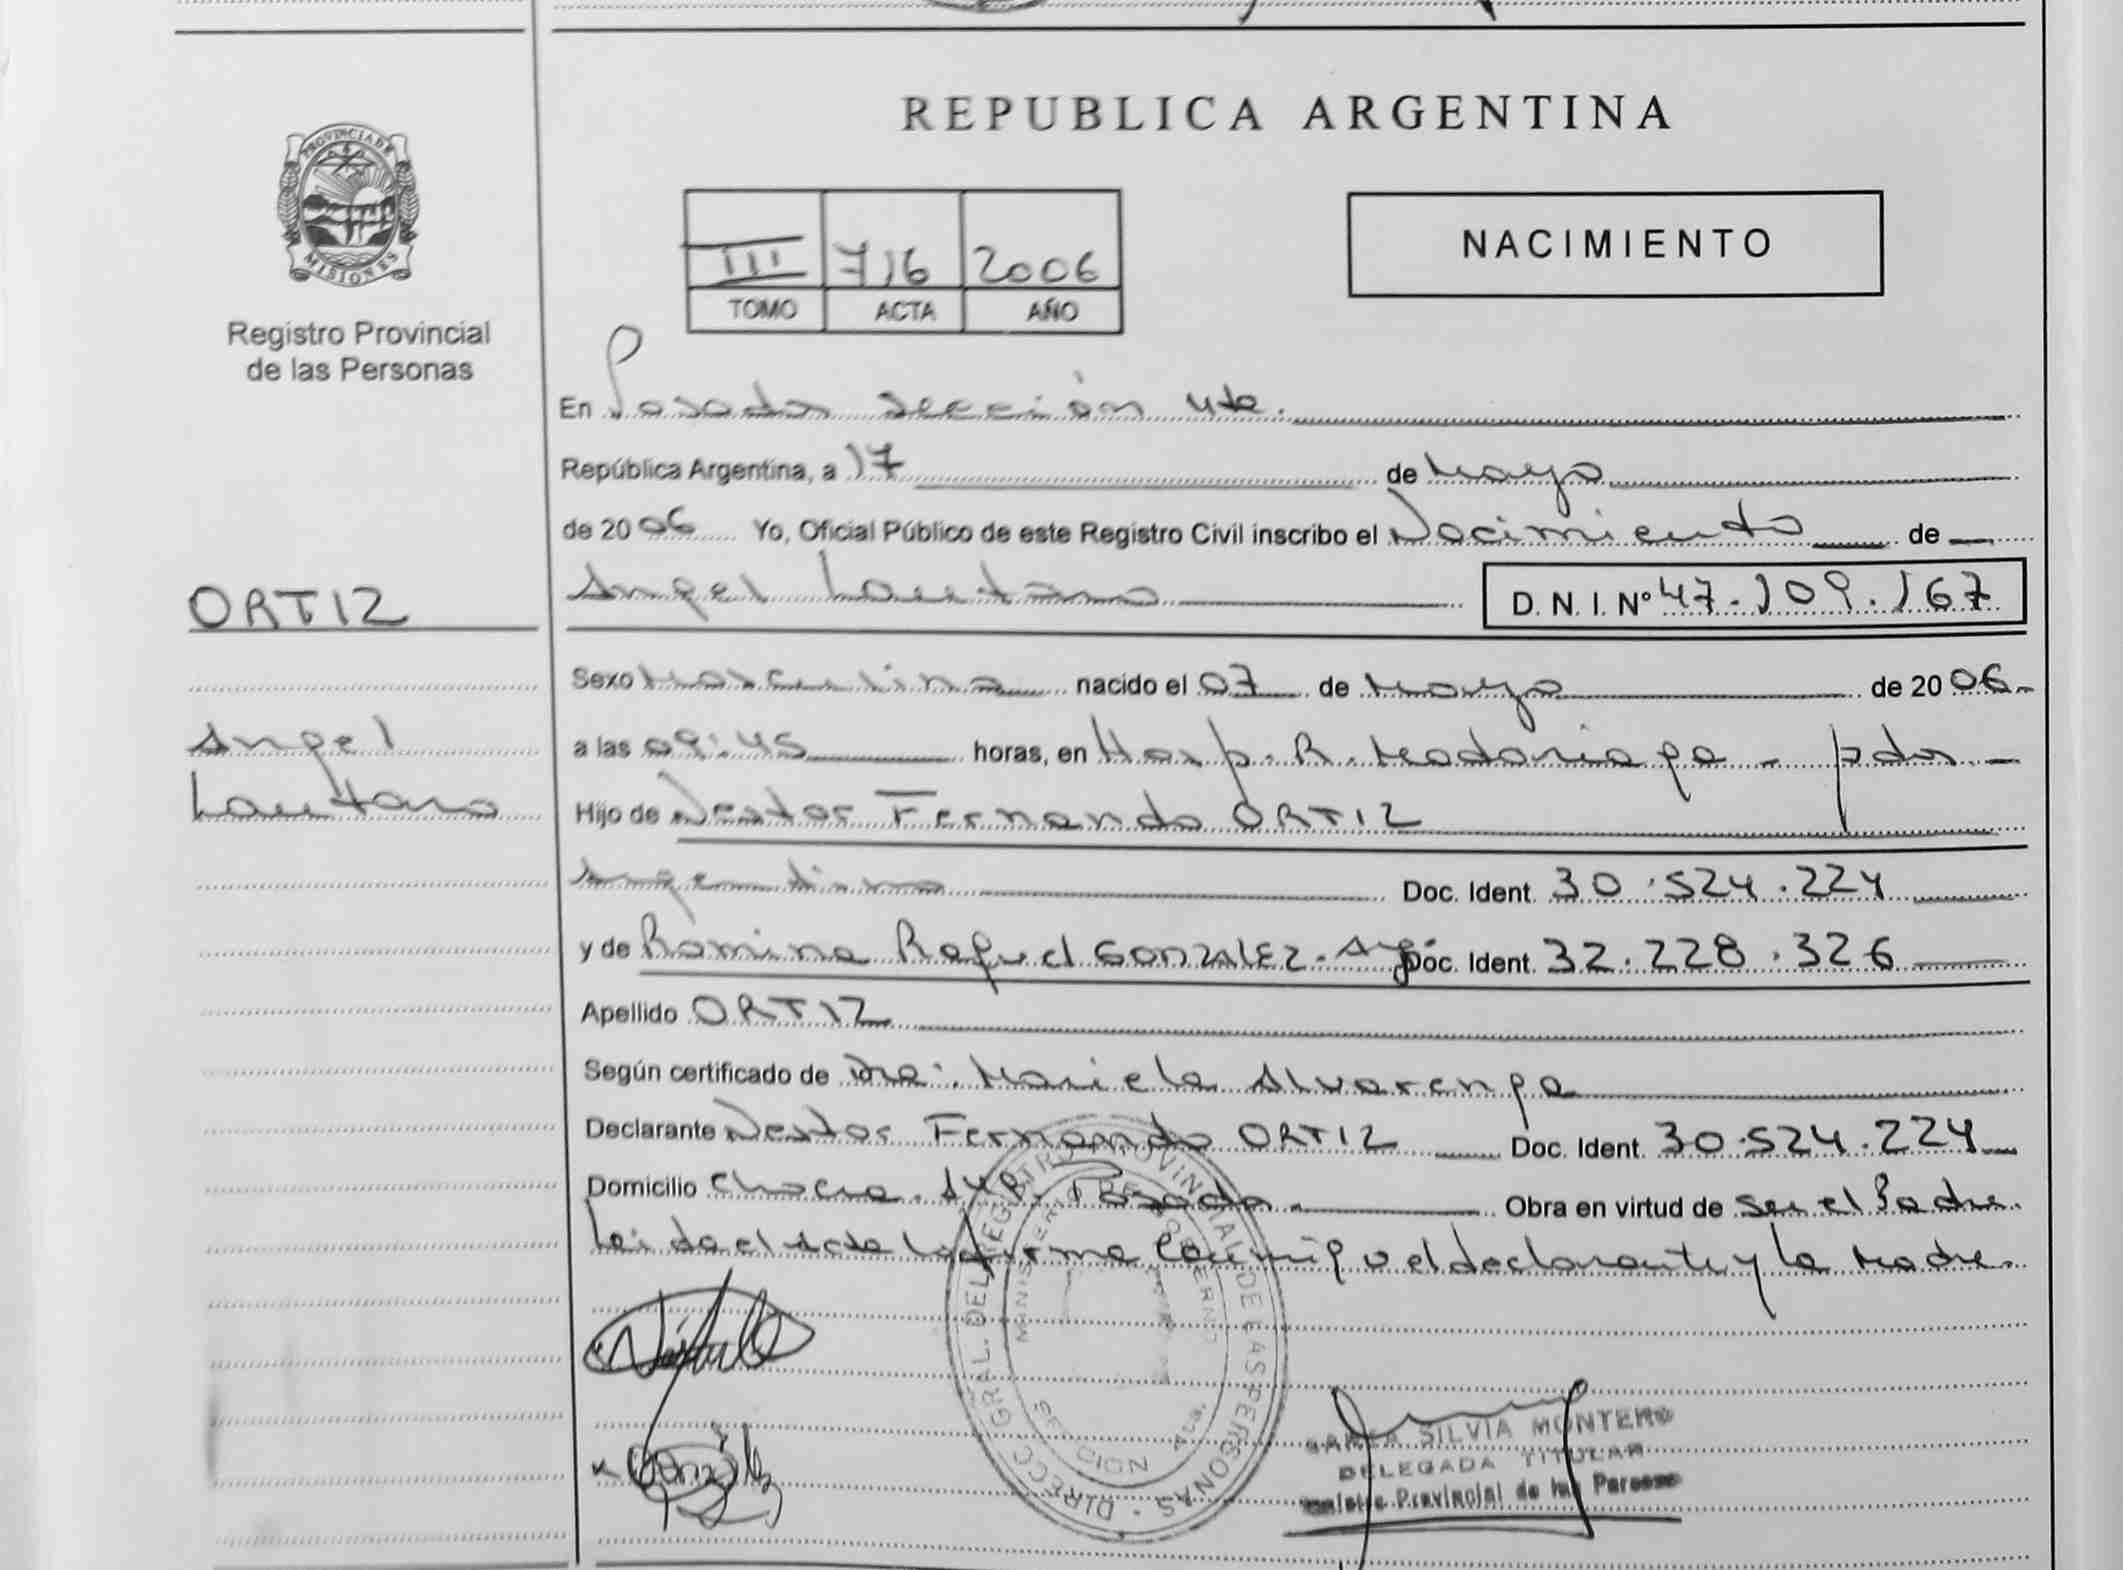 REPUBLICA ARGENTINA
PROVINCIA DE
MISIONES
Registro Provincial
de las Personas
III 716 2006
TOMO ACTA AÑO
NACIMIENTO
En Posadas sección 4ta.
República Argentina, a 17 de Mayo
de 2006 Yo, Oficial Público de este Registro Civil inscribo el Nacimiento de
Angel Lautaro D. N. I. Nº 47.109.167
ORTIZ
Angel
Lautaro
Sexo Masculino nacido el 07 de Mayo de 2006
a las 09:45 horas, en Hosp. R. Madariaga - pdas
Hijo de Nestor Fernando ORTIZ
Argentino Doc. Ident. 30.524.224
y de Romina Raquel GONZALEZ. Arg. Doc. Ident. 32.228.326
Apellido ORTIZ
Según certificado de Dra. Mariela Alvarenga
Declarante Nestor Fernando ORTIZ Doc. Ident. 30.524.224
Domicilio Chacra Posadas Obra en virtud de ser el Padre.
Leida el acta la firma conmigo el declarante y la Madre.
DIRECC. GRAL. DEL REGISTRO PROVINCIAL DE LAS PERSONAS
SECCION 4ta.
SILVIA MONTERO
DELEGADA TITULAR
Provincial de las Personas